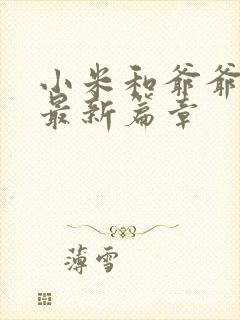 小米和爷爷
最新篇章
薄雪